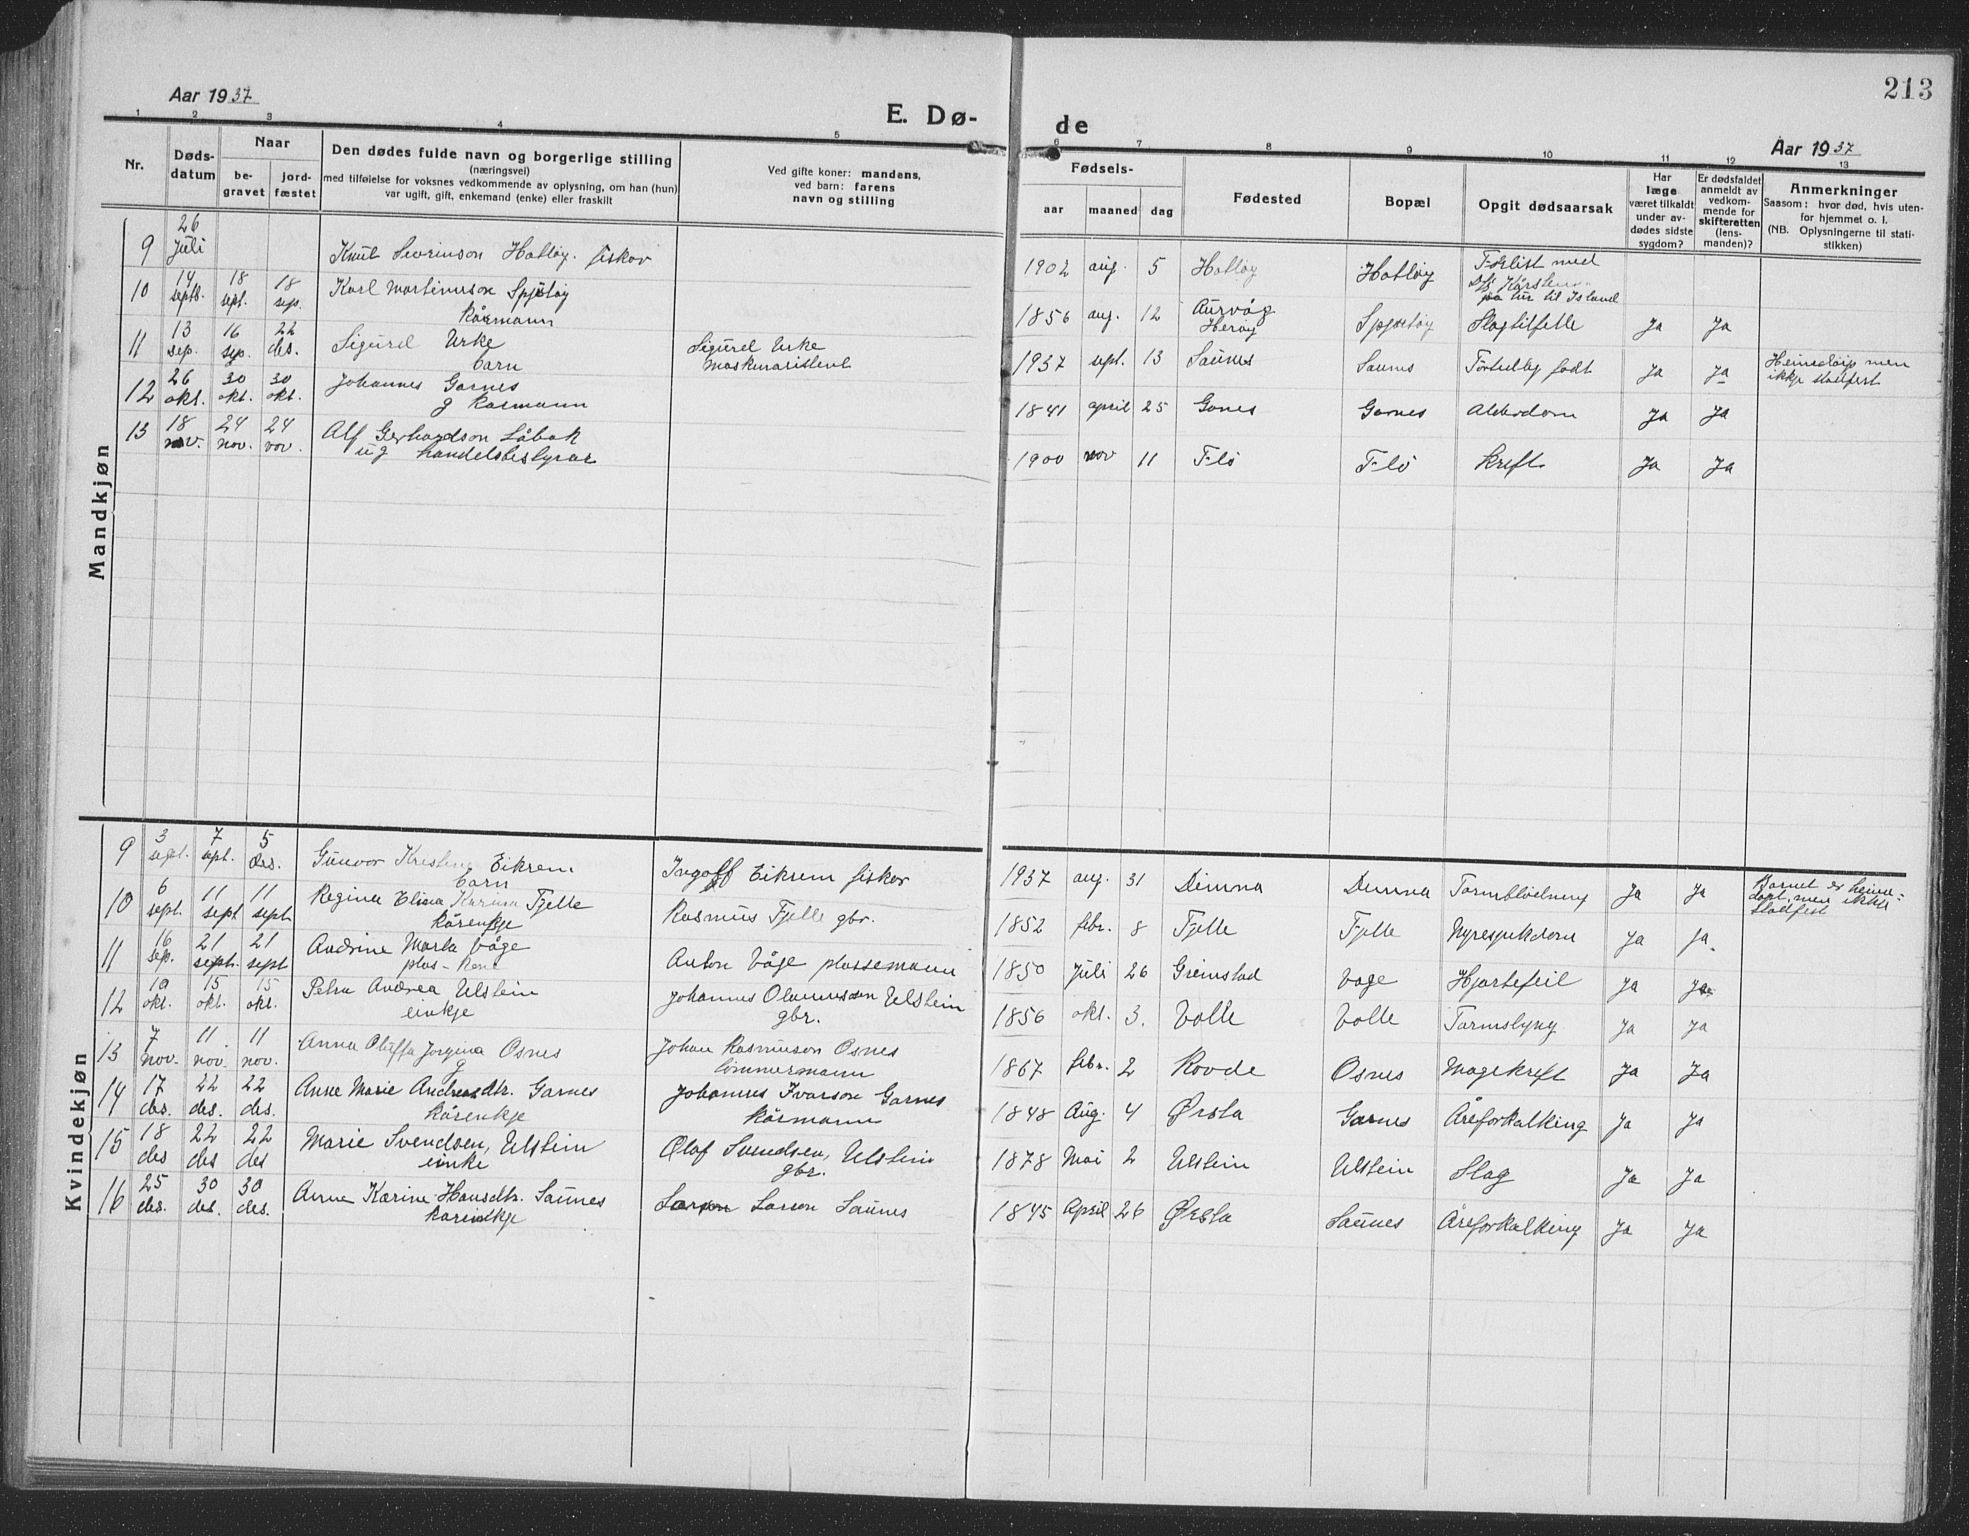 213
Aar 1937
E. Dø-
de
Aar 1937
1 2 3 4 5 6 7 8 9 10 11 12 13
Nr.
Døds-
datum
Naar
be-
gravet
jord-
fæstet
Den dødes fulde navn og borgerlige stilling
(næringsvei)
med tilføielse for voksnes vedkommende av oplysning, om han (hun)
var ugift, gift, enkemand (enke) eller fraskilt
Ved gifte koner: mandens,
ved barn: farens
navn og stilling
Fødsels-
aar maaned dag
Fødested
Bopæl
Opgit dødsaarsak
Har
læge
været tilkaldt
under av-
dødes sidste
sygdom?
Er dødsfaldet
anmeldt av
vedkom-
mende for
skifteretten
(lens-
manden)?
Anmerkninger
Saasom: hvor død, hvis uten-
for hjemmet o. l.
(NB. Oplysningerne til stati-
stikken)
Mandkjøn
9 26 Juli Knut Sevrinson Hatløy. fiskar 1902 aug. 5 Hatløy Hatløy Forlist med
på tur til Island
10 14 septb. 18 sept. 18 sep. Karl Martinusson Spjutøy
kårmann 1856 aug. 12 Aurvåg
Herøy Spjutøy Slagtilfelle Ja Ja
11 13 sep. 16 sep. 22 des. Sigurd Urke
barn Sigurd Urke
maskinaristent 1937 sept. 13 Saunes Saunes Fortidleg født Ja Ja Heimedøip men
ikkje stadfest
12 26 okt. 30 okt. 30 okt. Johannes Garnes
g kårmann 1841 april 25 Garnes Garnes Alderdom Ja Ja
13 18 nov. 24 nov. 24 nov. Alf Gerhardson Låbak
ug handelsbestyrar 1900 nov 11 Flø Flø Kreft Ja Ja
Kvindekjøn
9 3 sept. 7 sept. 5 des. Gunvor Kristine Eikrem
barn Ingolf Eikrem fiskar 1937 aug. 31 Dimna Dimna Tarmblødning Ja Ja Barnet er heime-
døpt, men ikkje
stadfest
10 6 sept. 11 sept 11 sept Regina Elina Karina Fjelle
kårenkje Rasmus Fjelle gbr. 1852 febr. 8 Fjelle Fjelle Nyresjukdom Ja Ja.
11 16 sep. 21 sept. 21 sept Andrine Marta Våge
plas-kone Anton Våge plassemann 1850 Juli 26 Grimstad Våge Hjartefeil Ja Ja
12 10 okt. 15 okt. 15 okt. Petra Andrea Ulstein
einkje Johannes Olaussson Ulstein
gbr. 1856 okt. 3. Volle Volle Tarmslyng Ja Ja
13 7 nov. 11 nov. 11 nov. Anna Oluffa Jorgina Osnes
g Johan Rasmusson Osnes
tømmermann 1867 febr. 2 Rovde Osnes Magekreft Ja Ja
14 17 des. 22 des. 22 des. Anne Marie Andreasdtr. Garnes
kårenkje Johannes Ivarson Garnes
kårmann 1848 Aug. 4 Ørsta Garnes Åreforkalking Ja Ja
15 18 des 22 des 22 des Marie Svendsen, Ulstein
einke Olaf Svendsen, Ulstein
gbr. 1878 Mai 2 Ulstein Ulstein Slag Ja Ja
16 25 des. 30 des. 30 des. Anne Karine Hansdtr. Saunes
kårenkje Larson Saunes 1845 April 26 Ørsta Saunes Åreforkalking Ja Ja